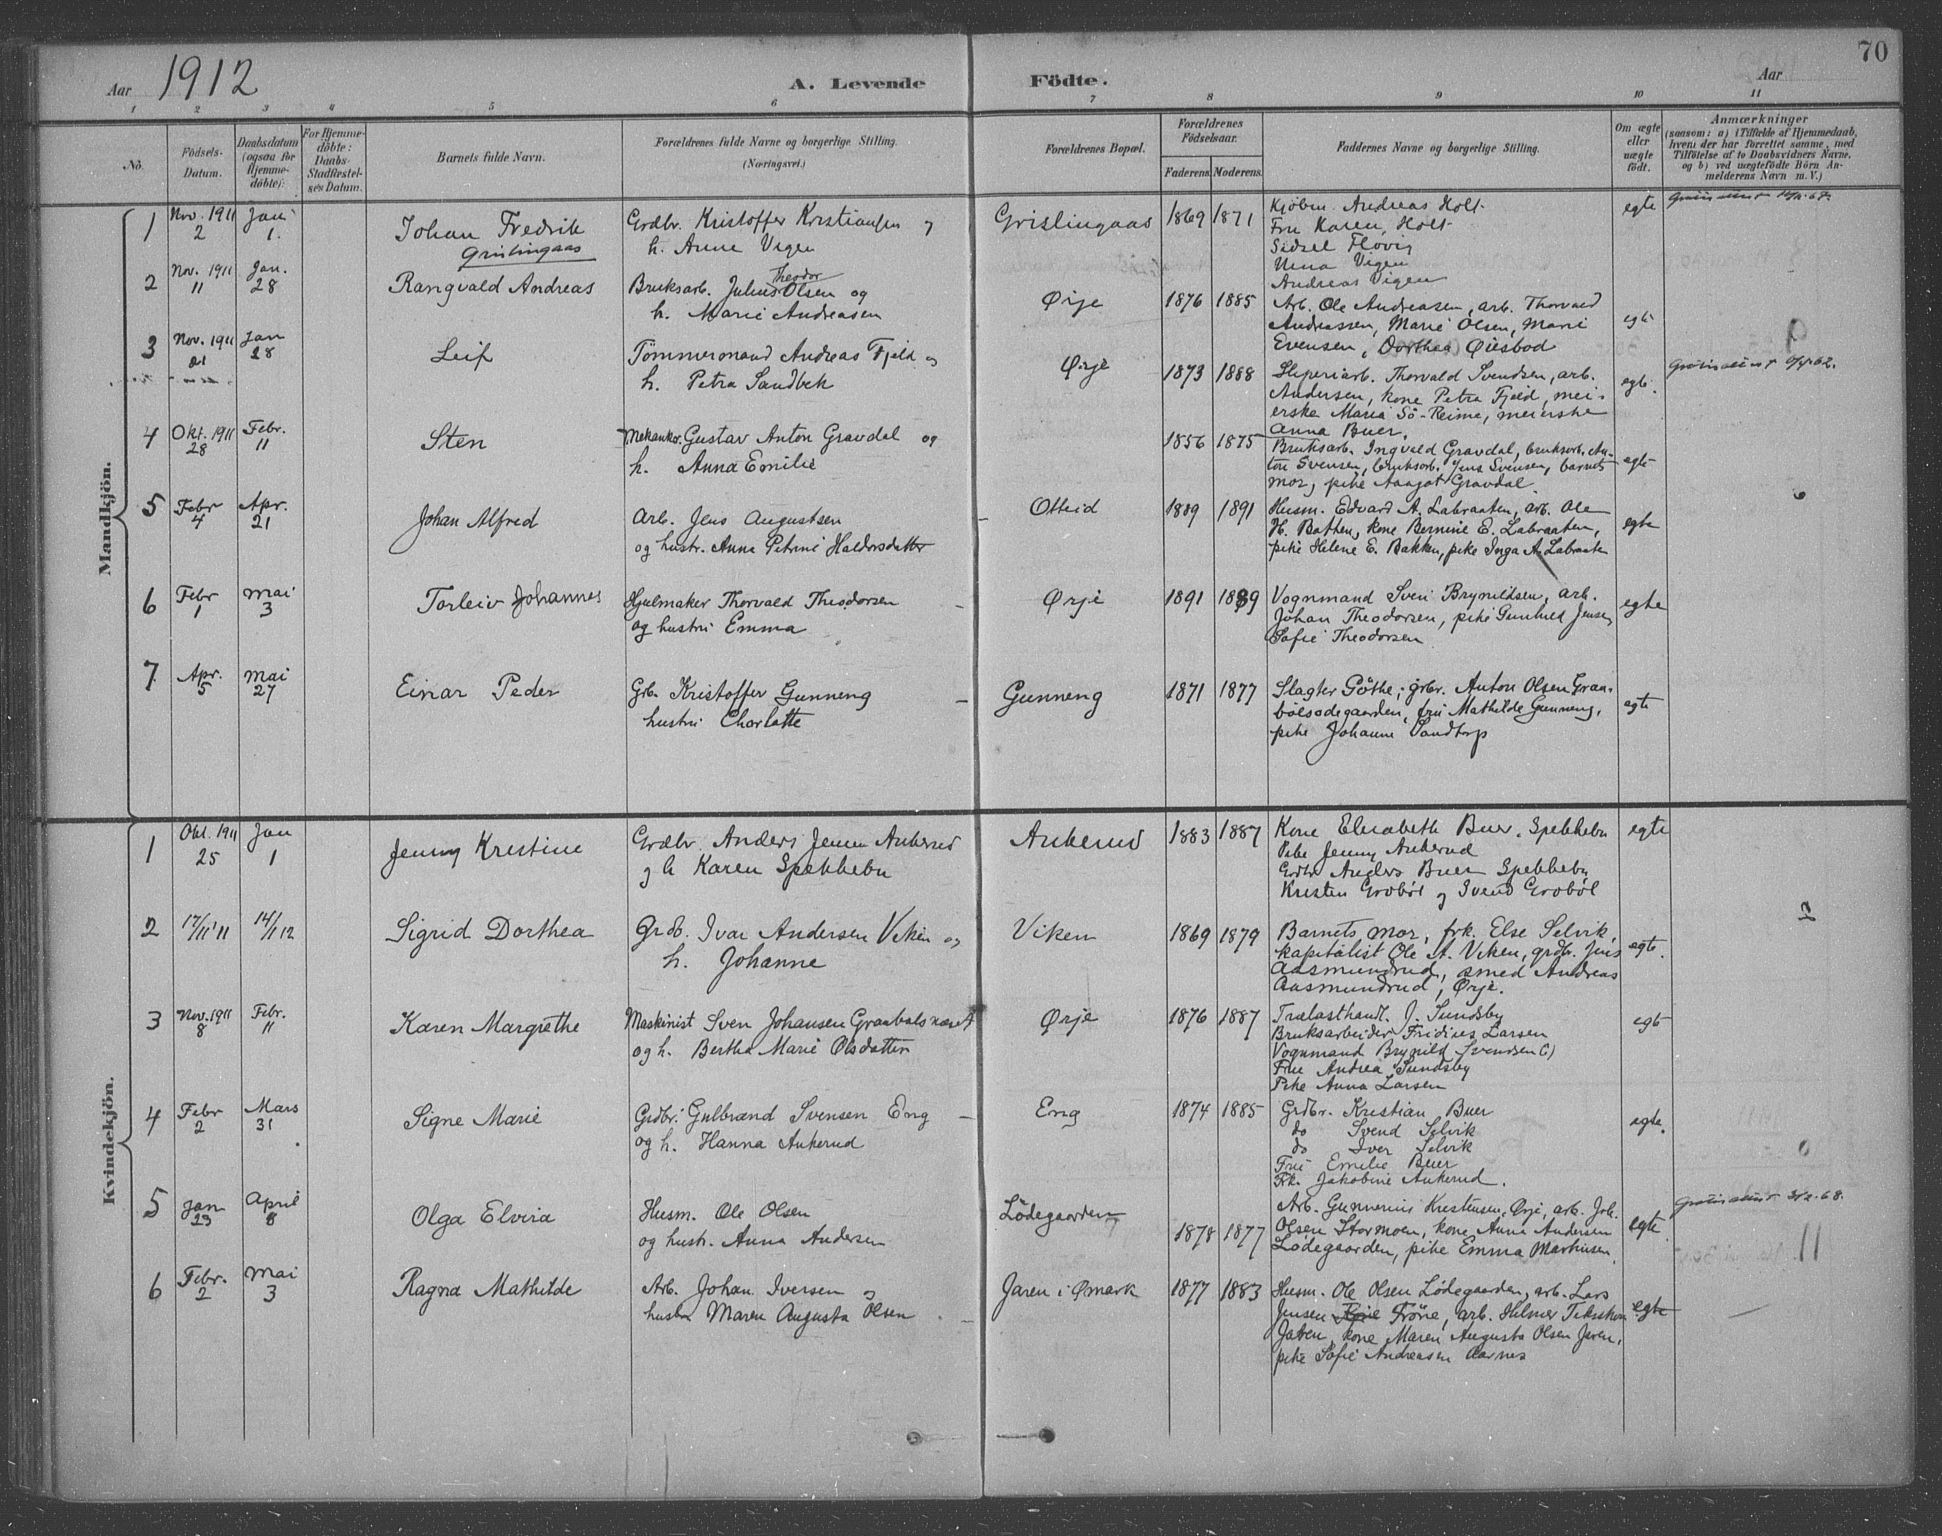 70
Aar 1912
A. Levende Födte.
Aar
1 2 3 4 5 6 7 8 9 10 11
No.
Födsels-Datum.
Daabsdatum (ogsaa for Hjemmedöbte):
For Hjemmedöbte: Daabs-Stadfæstelses Datum.
Barnets fulde Navn.
Forældrenes fulde Navne og borgerlige Stilling. (Næringsvei.)
Forældrenes Bopæl.
Forældrenes Födselsaar.
Faderens. Moderens.
Faddernes Navne og borgerlige Stilling.
Om ægte eller uægte födt.
Anmærkninger
(saasom: a) i Tilfælde af Hjemmedaab, hvem der har forrettet samme, med Tilföielse af to Daabsvidners Navne, og b) ved uægtefödte Börn Anmelderens Navn m. V.)
Mandkjön.
1 Nov. 1911 2 Jan. 1. Johan Fredrik Grislingaas
Grdbr. Kristoffer Kristiansen og
h. Anne Vigen
Grislingaas 1869 1871
Kjöbm. Andreas Holt
Fru Karen Holt
Sidsel Flovig
Anna Vigen
Andreas Vigen
egte
2 Nov. 1911 11 Jan. 28 Rangvald Andreas
Bruksarb. Julius Theodor Olsen og
h. Marie Andreasen
Ørje 1876 1885
Arb. Ole Andreasen, arb. Thorvald
Andreassen, Marie Olsen, Marie
Evensen, Dorthea Øiesbod
egte
3 Nov. 1911 21 Jan 28 Leif
Tömmermand Andreas Fjeld og
h. Petra Sandbek
Ørje 1873 1888
Sliperiarb. Thorvald Svendsen, arb.
Andersen, kone Petra Fjeld, mei-
erske Maria Sö-Reime, meierske
Anna Buer.
egte.
4 Okt. 1911 28 Febr. 11 Sten
Mekaniker Gustav Anton Gravdal og
h. Anna Emilie
1856 1875
Bruksarb. Ingvald Gravdal, bruksarb. An-
ton Svensen, bruksarb. Jens Svensen, barnets
mor, pike Aagot Gravdal.
egte
5 Febr 4 Apr. 21 Johan Alfred
Arb. Jens Augustsen
og hustr. Anna Petrine Haldorsdatter
Otteid 1889 1891
Husm. Edvard A. Labraaten, arb. Ole
H. Bakken, kone Bernine E. Labraaten,
pike Helene E. Bakken, pike Inga A. Labraaten
egte
6 Febr 1 Mai 3 Torleiv Johannes
Hjulmaker Thorvald Theodorsen
og hustru Emma
Ørje 1891 1889
Vognmand Sven Brynildsen, arb.
Johan Theodorsen, pike Gunhild Jensen,
Sofie Theodorsen
egte
7 Apr. 5 Mai 27 Einar Peder
Grb. Kristoffer Gunneng
hustru Charlotte
Gunneng 1871 1877
Slagter Göthe, grbr. Anton Olsen Graa-
bölsödegaarden, fru Mathilde Gunneng,
pike Johanne Sandtorp
egte
Kvindekjön.
1 Okt. 1911 25 Jan 1 Jenny Kristine
Grdbr. Anders Jensen Ankerud
og h Karen Spekkebu
Ankerud 1883 1887
Kone Elisabeth Buer. Spekkebu
Pike Jenny Ankerud
Grdbr Anders Buer Spekkebu
Kristen Grobøl og Svend Grobøl
egte
2 17/11 '11 14/1 12 Sigrid Dorthea
Grdb. Ivar Andersen Viken og
h. Johanne
Viken 1869 1879
Barnets mor, frk. Else Selvik,
kapitalist Ole A. Viken, grdbr. Jens
Aasmundrud, smed Andreas
Aasmundrud, Ørje.
egte.
3 Nov. 1911 8 Febr. 11 Karen Margrethe
Maskinist Sven Johansen Graabøl
og h. Bertha Marie Olsdatter
Ørje 1876 1887
Trælasthandl. J. Sundsby
Bruksarbeider Fridius Larsen
Vognmand Brynild Svendsen
Frue Andrea Sundsby
Pike Anna Larsen
egte
4 Febr 2 Mars 31 Signe Marie
Grdbr. Gulbrand Svensen Eng
og h. Hanna Ankerud
Eng 1874 1885
Grdbr. Kristian Buer
do Svend Selvik
do Iver Selvik
Fru Emelie Buer
Frk. Jakobine Ankerud.
egte.
5 Jan 23 April 8 Olga Elvira
Husm. Ole Olsen
og hustr. Anna Andersen
Lödegaarden 1878 1877
Arb. Gunnerius Kristensen, Ørje, arb. Joh.
Olsen Stormoen, kone Anna Andersen
Lödegaarden, pike Emma Markusen
egte
11
6 Febr. 2 Mai 3 Ragna Mathilde
Arb. Johan Iversen og
hustru Maren Augusta Olsen
Jaren i Ømark 1877 1883
Husm. Ole Olsen Lödegaarden, arb. Lars
Jensen Fröne, arb. Helmer
Jaren, kone Maren Augusta Olsen Jaren,
pike Sofie Andreasen Aarnes
egte